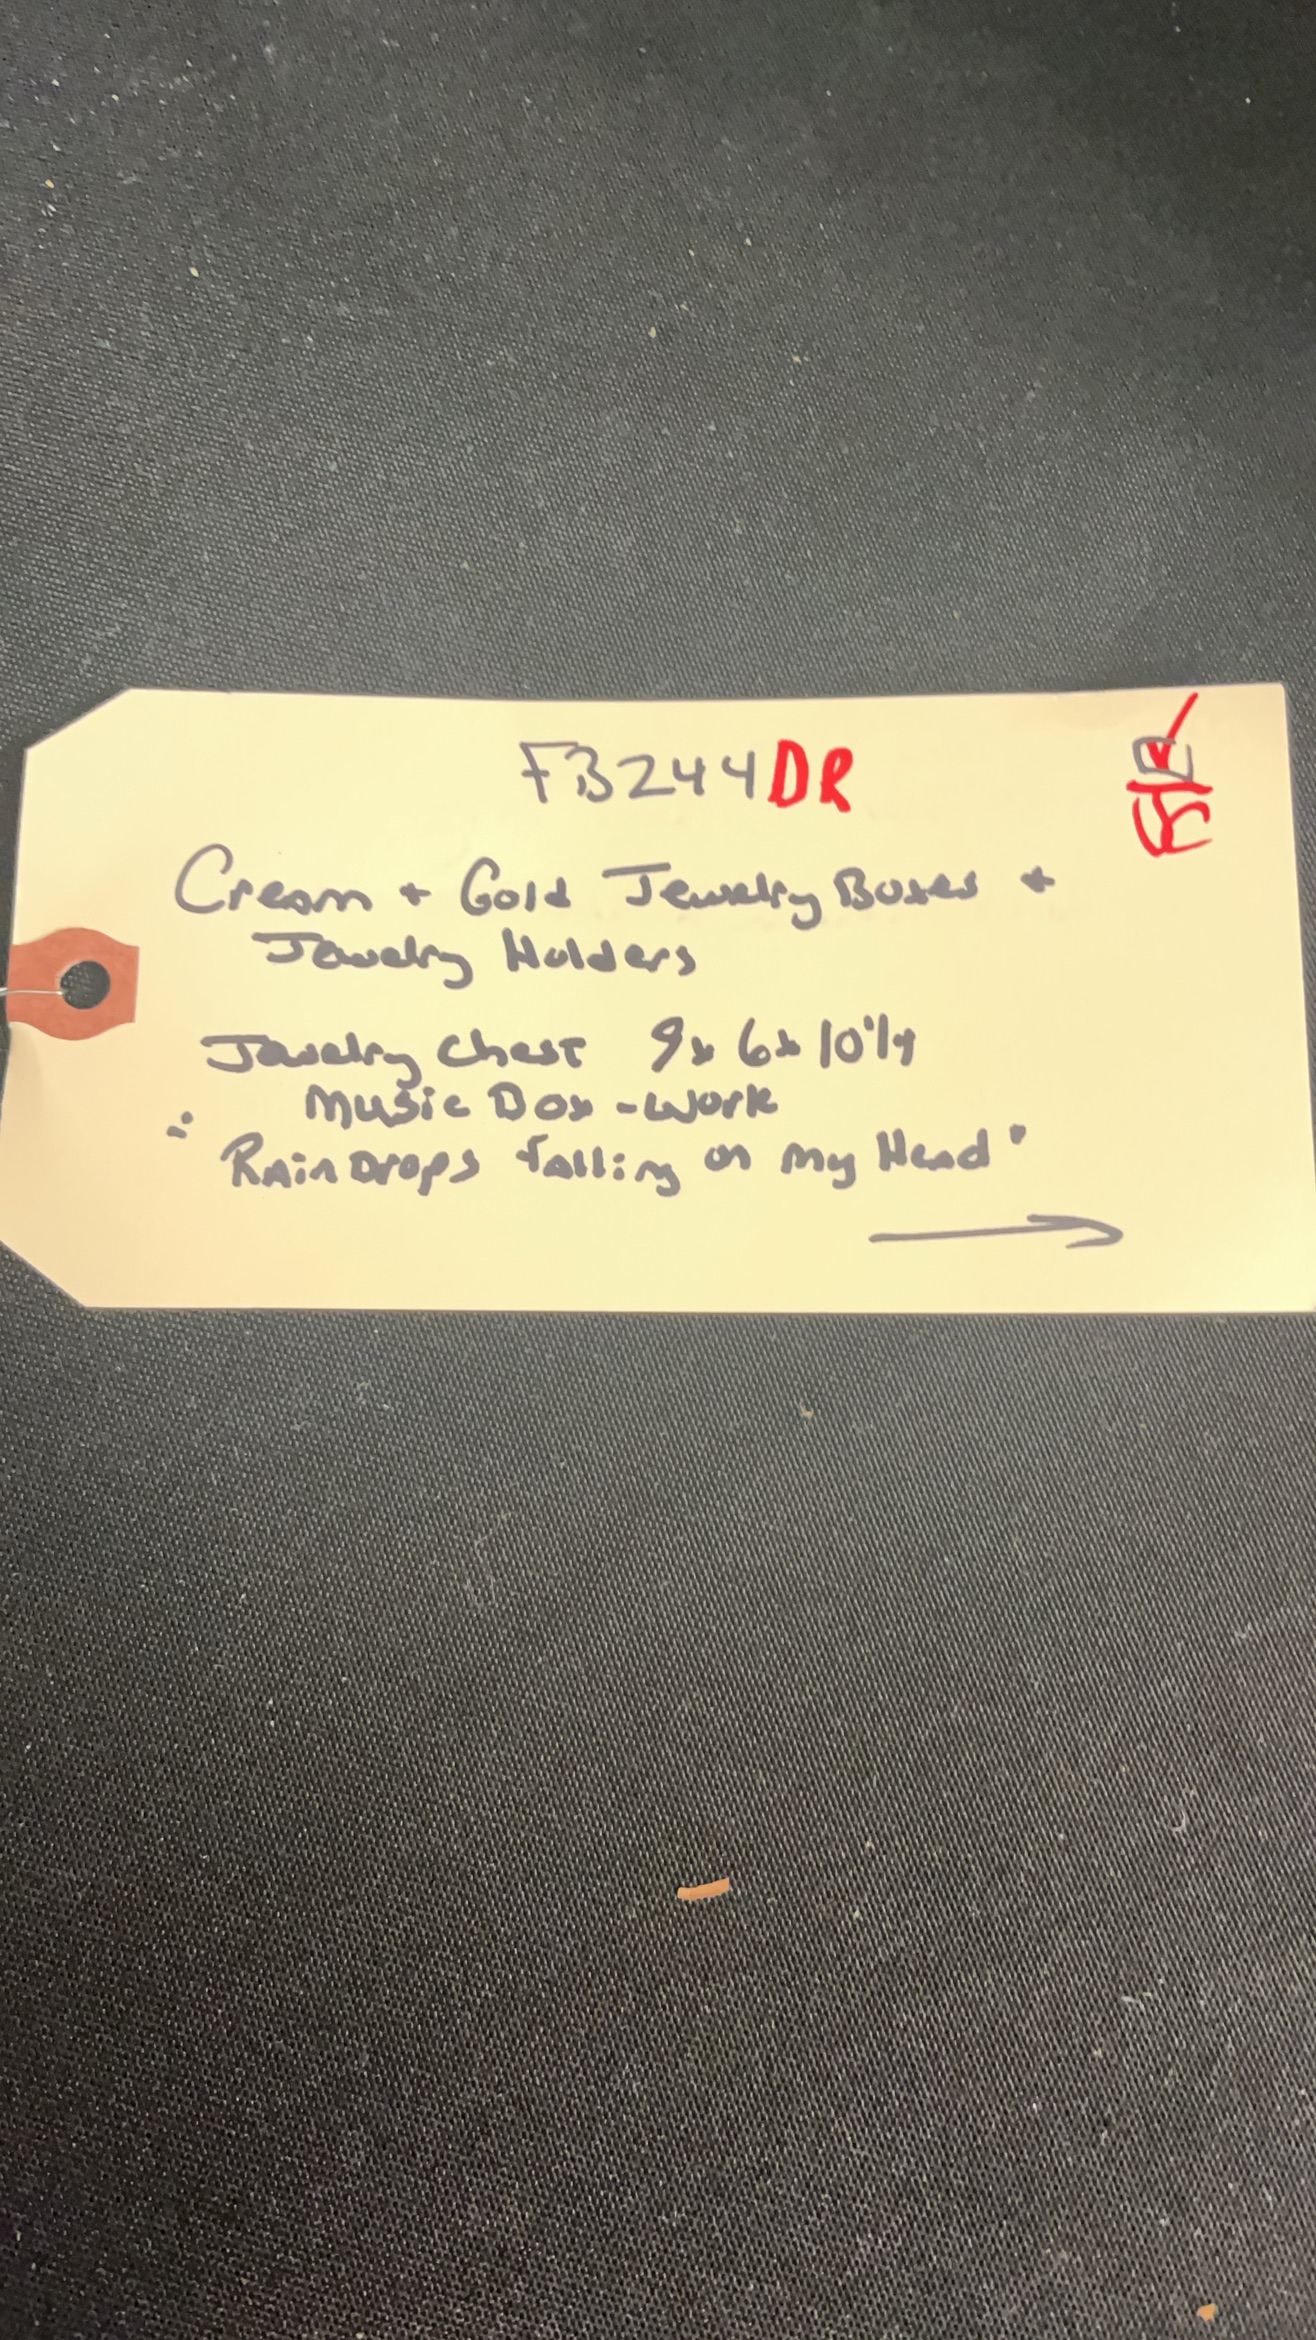 FB244DR
Cream + Gold Jewelry Boxes +
Jewelry Holders
Jewelry Chest 9x6x10 1/4
Music Box - Work
"Raindrops falling on my Head"